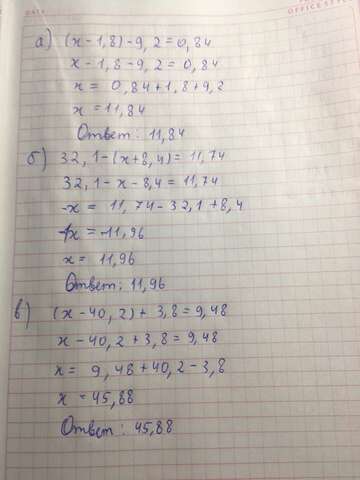 DATE
OFFICE STYLE
а) (x-1,8)-9,2=0,84
x-1,8-9,2=0,84
x= 0,84+1,8+9,2
x=11,84
Ответ: 11,84
б) 32,1-(x+8,4)=11,74
32,1-x-8,4=11,74
-x= 11,74-32,1+8,4
-x=-11,96
x= 11,96
Ответ: 11,96
в) (x-40,2)+3,8=9,48
x-40,2+3,8=9,48
x= 9,48+40,2-3,8
x=45,88
Ответ: 45,88